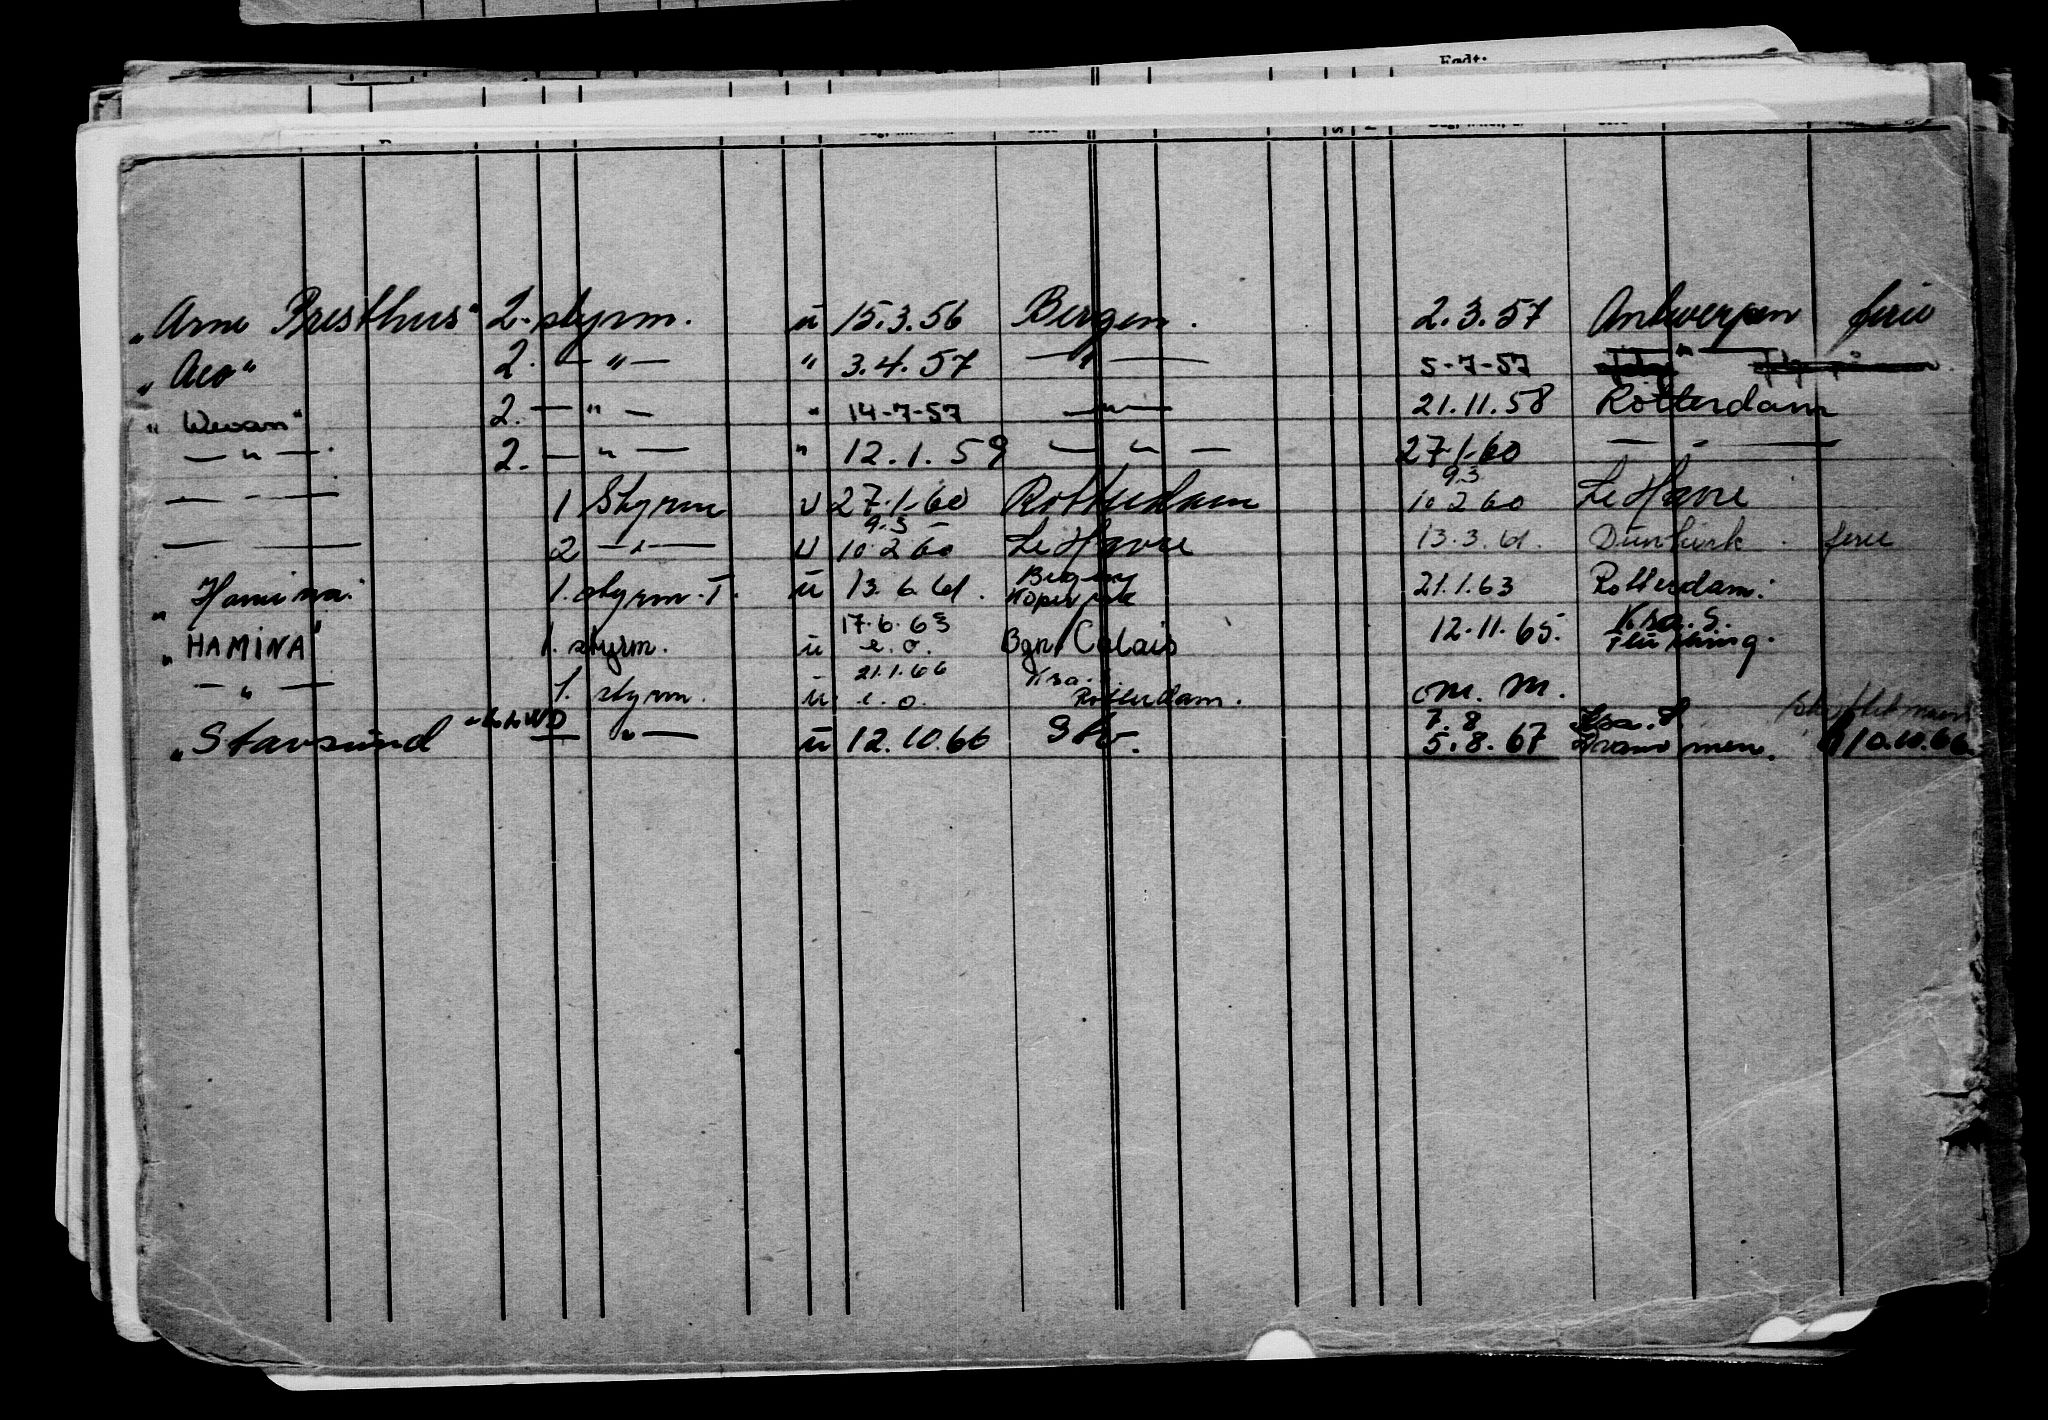 Født:
"Arne Presthus" 2. styrm. u 15.3.56 Bergen. 2.3.57 Antwerpen ferie
"Aco" 2. — " — " 3.4.57 — " — 5-7-57 — " —
"Wevan" 2. — " — " 14-7-57 — " — 21.11.58 Rotterdam
— " — 2. — " — " 12.1.59 — " — 27-1-60 — " —
— — 1 Styrm u 27-1-60 Rotterdam 9.3 10 2 60 Le Havre
— — 2 — " — u 9.3 10.2 60 Le Havre 13.3.61. Dunkirk. ferie
"Hamina" 1. styrm. T. u 13.6.61. Bergen 21.1.63 Rotterdam.
"HAMINA" 1. styrm. u 17.6.63 e.o. Bgn. Calais 12.11.65. Kra.S. Flushing.
— " — 1. styrm. u 21.1.66 e.o. Kra. Rotterdam. m.m.
"Stavsund" — " — u 12.10.66 7.8 5.8.67 Kra.S Drammen. 10.10.66.